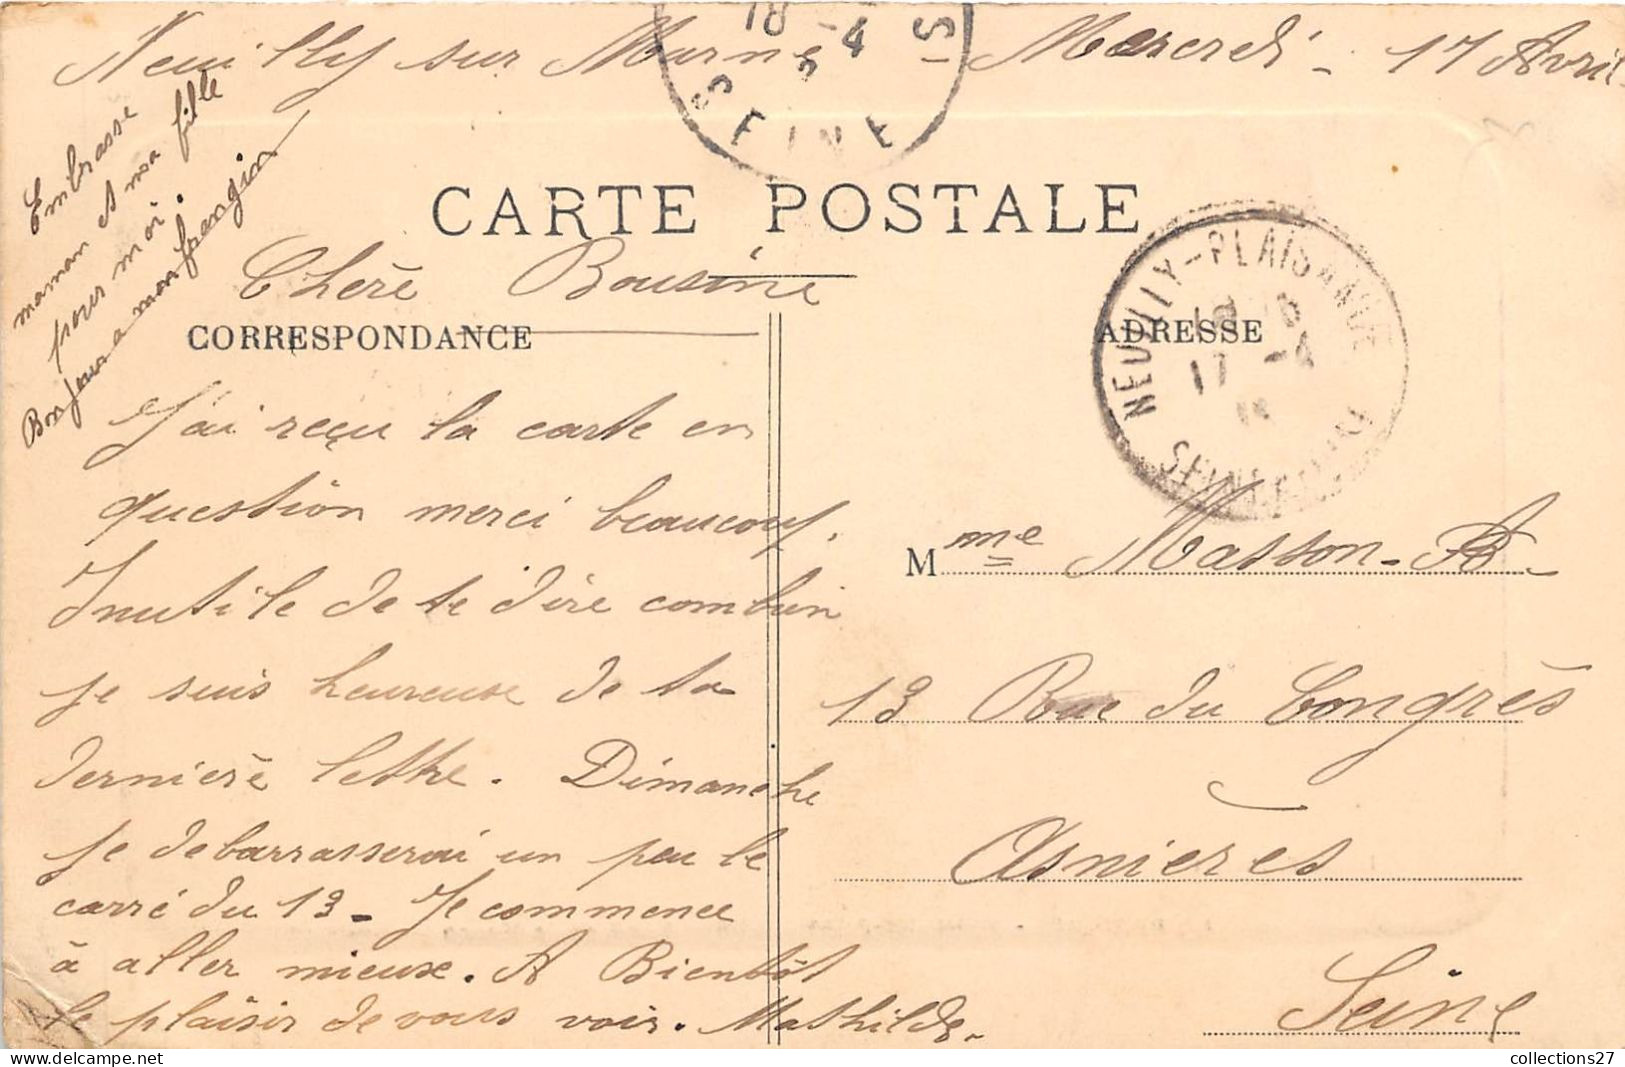 Neuilly sur Marne - Mercredi - 17 Avril
18 -4
SEINE
Embrasse
maman et ma fille
pour moi.
Bonjour a mon frangin
CARTE POSTALE
Chère Cousine
CORRESPONDANCE
ADRESSE
NEUILLY-PLAISANCE
17 -4
SEINE
J'ai reçu la carte en
question merci beaucoup.
Inutile de te dire combien
je suis heureuse de ta
dernière lettre. Dimanche
je debarrasserai un peu le
carré du 13 - Je commence
à aller mieux. A Bientôt
le plaisir de vous voir. Mathilde.
Mme Masson - A -
13 Rue du Congrès
Asnières
Seine
collections27